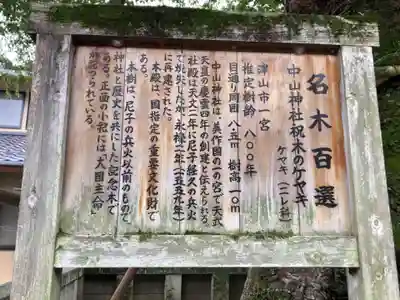 名木百選
中山神社祝木のケヤキ
ケヤキ(ニレ科)
津山市一宮
推定樹齢 八〇〇年
目通り周囲 八・五m 樹高 一〇m
中山神社は、美作国一の宮で天武
天皇の慶雲四年の創建と伝えられる。
社殿は天文二年に尼子経久の兵火
で焼失したが、永禄二年(一五五九年)
に再建された。
本殿は、国指定の重要文化財で
ある。
本樹は、尼子の兵火以前のもので
神社と歴史を共にした記念木で
ある。正面の小祠には「大国主命」
が祀つられている。